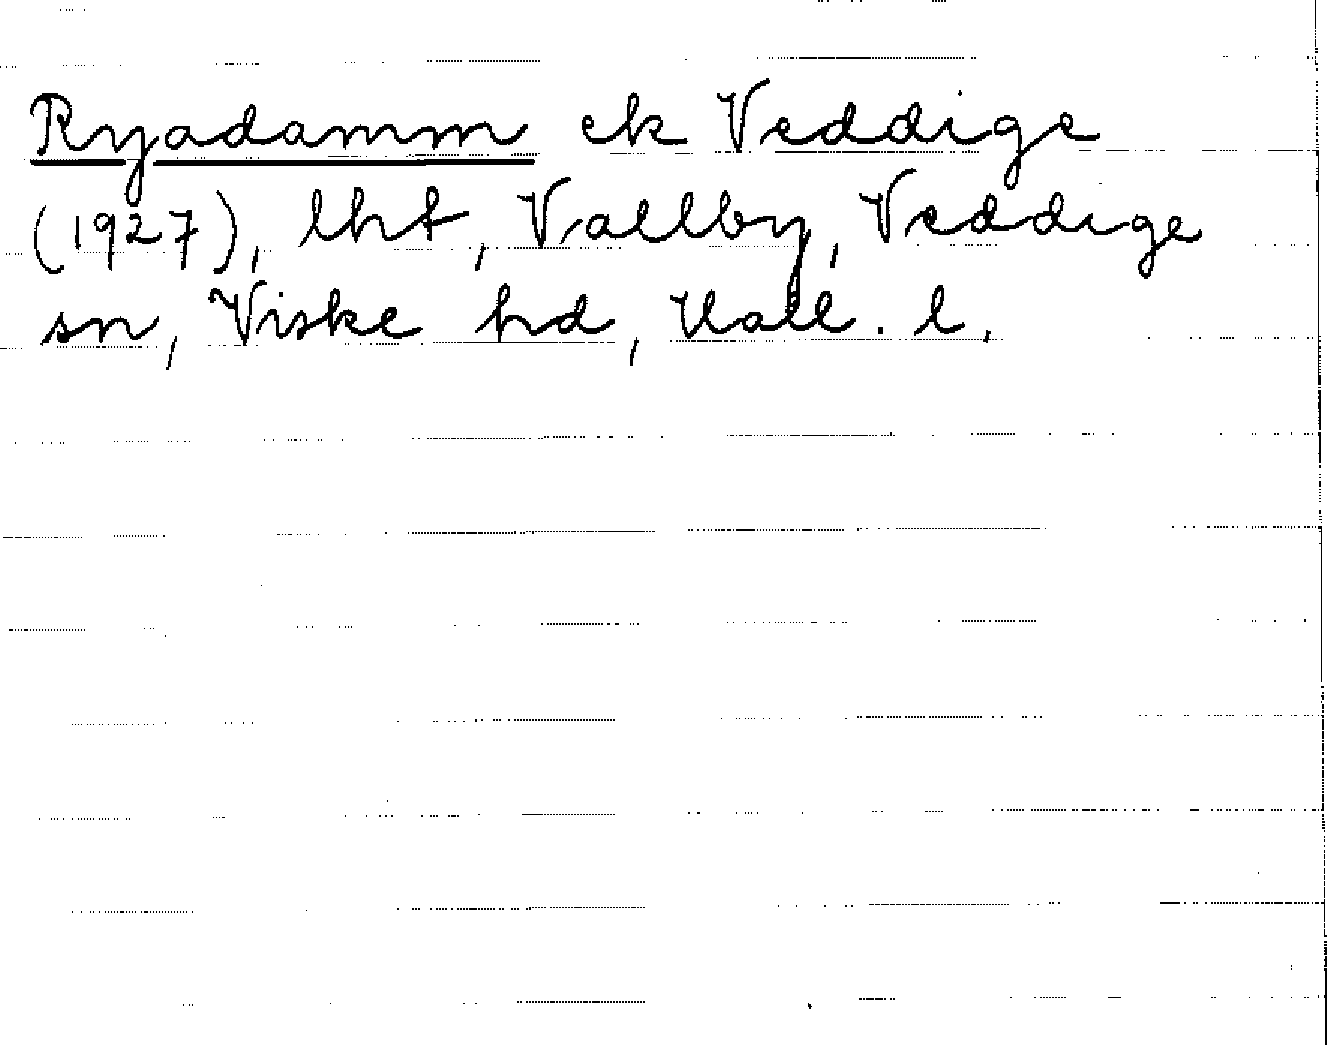 Ryadamm ek Veddige
(1927), lht, Vallby, Veddige
sn, Viske hd, Hall. l.